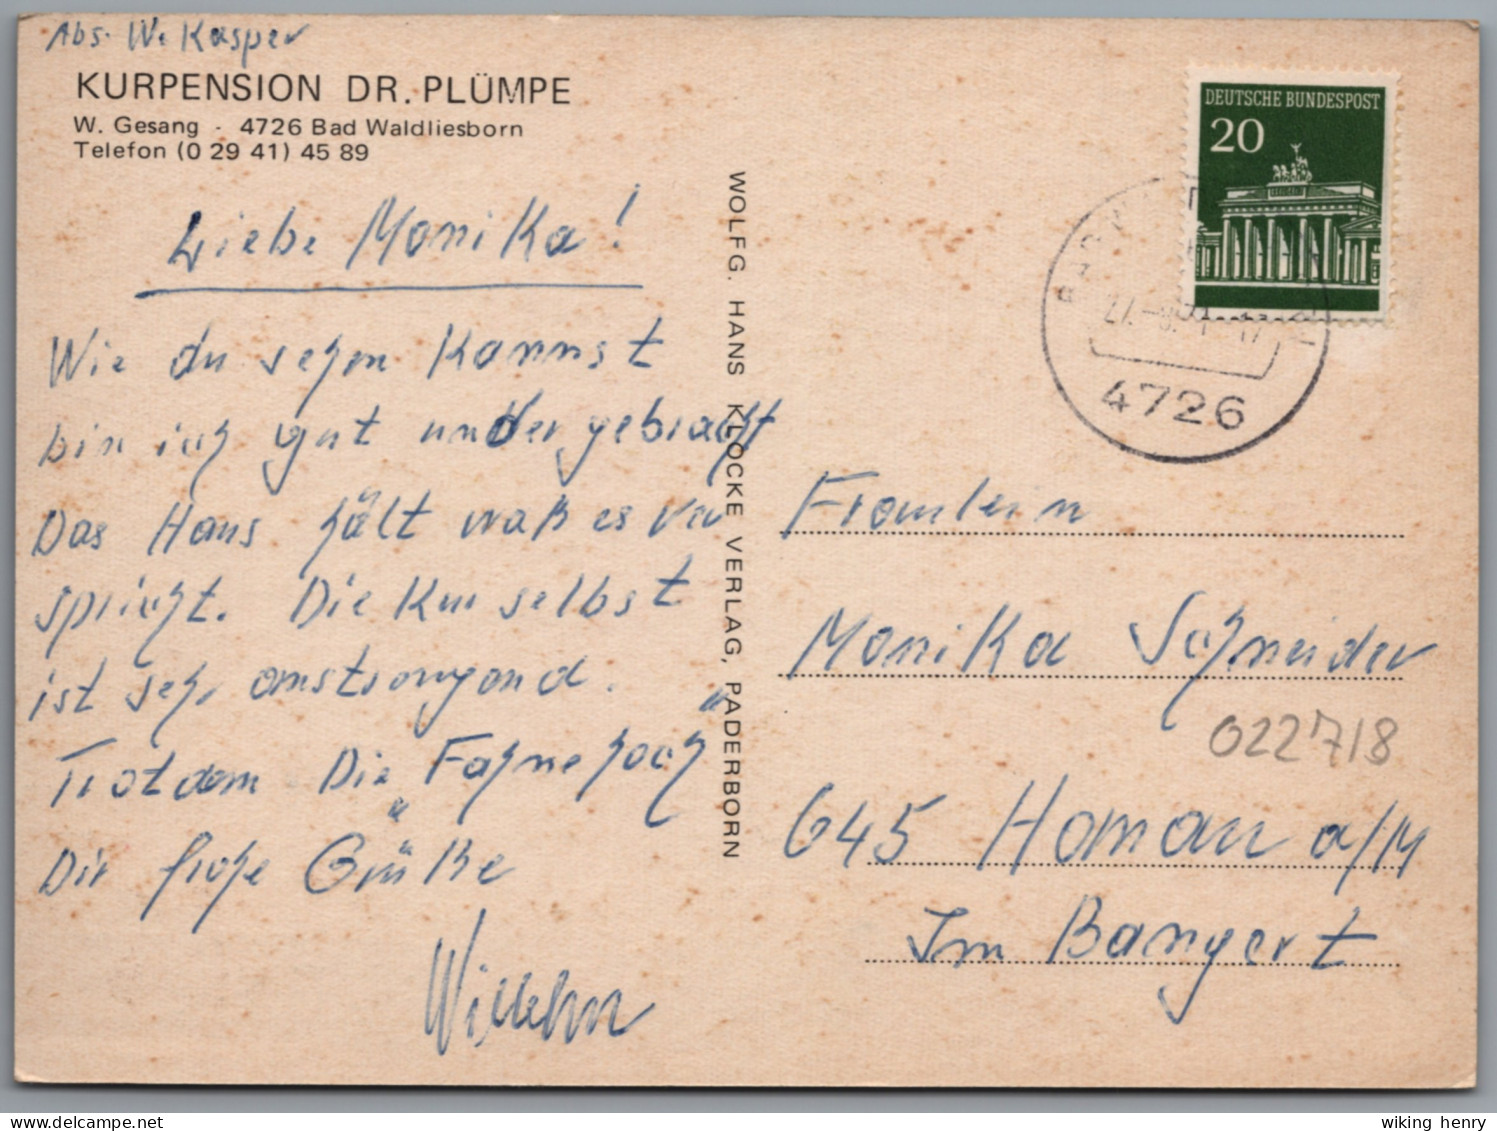 Abs. W. Kasper
KURPENSION DR. PLÜMPE
W. Gesang - 4726 Bad Waldliesborn
Telefon (0 29 41) 45 89
Liebe Monika!
Wie du sehen kannst
bin ich gut untergebracht
Das Haus hält waß es ver
spricht. Die Kur selbst
ist sehr anstrengend.
Trotdem Die „Fahne hoch"
Dir frohe Grüße
Wilhelm
WOLFG. HANS KLOCKE VERLAG, PADERBORN
DEUTSCHE BUNDESPOST
20
4726
Fräulein
Monika Schneider
022718
645 Hanau a/M
Im Bangert
wiking henry